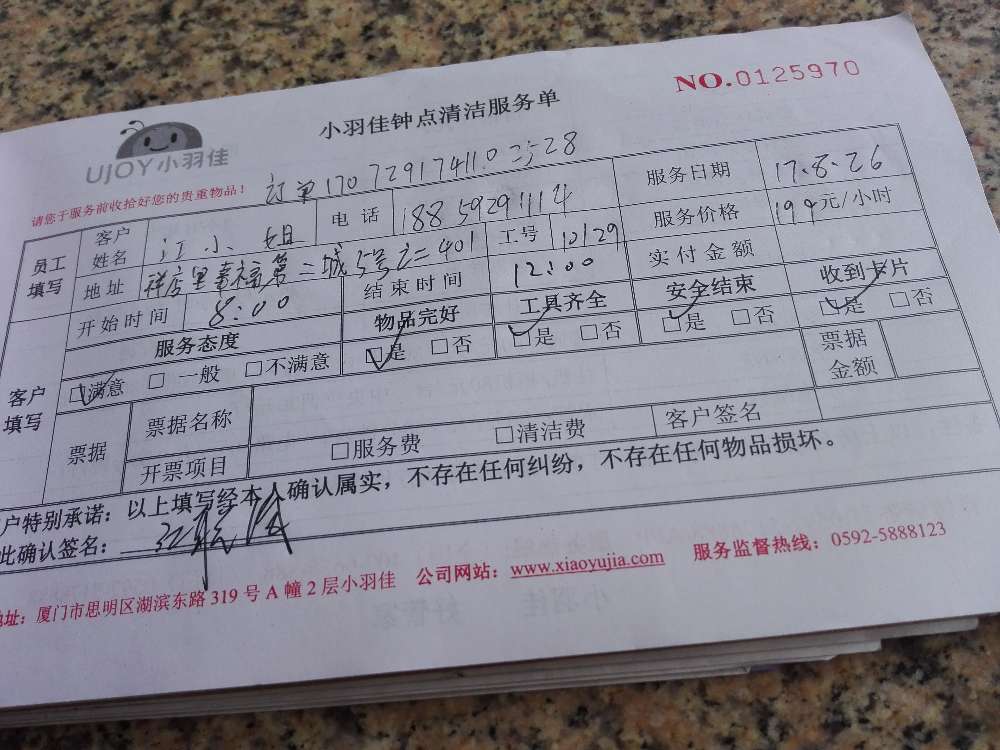 NO.0125970
小羽佳钟点清洁服务单
UJOY小羽佳
请您于服务前收拾好您的贵重物品！
订单1707291741102528
员工填写 客户姓名 江小姐 电话 18859291114 服务日期 17.8.26
地址 祥店里幸福第二城5号之二401 工号 10129 服务价格 194元/小时
开始时间 8:00 结束时间 12:00 实付金额
客户填写 服务态度 物品完好 工具齐全 安全结束 收到卡片
☑满意 □一般 □不满意 ☑是 □否 ☑是 □否 ☑是 □否 ☑是 □否
票据 票据名称 票据金额
开票项目 □服务费 □清洁费 客户签名
户特别承诺：以上填写经本人确认属实，不存在任何纠纷，不存在任何物品损坏。
此确认签名：
地址：厦门市思明区湖滨东路319号A幢2层小羽佳 公司网站：www.xiaoyujia.com 服务监督热线：0592-5888123